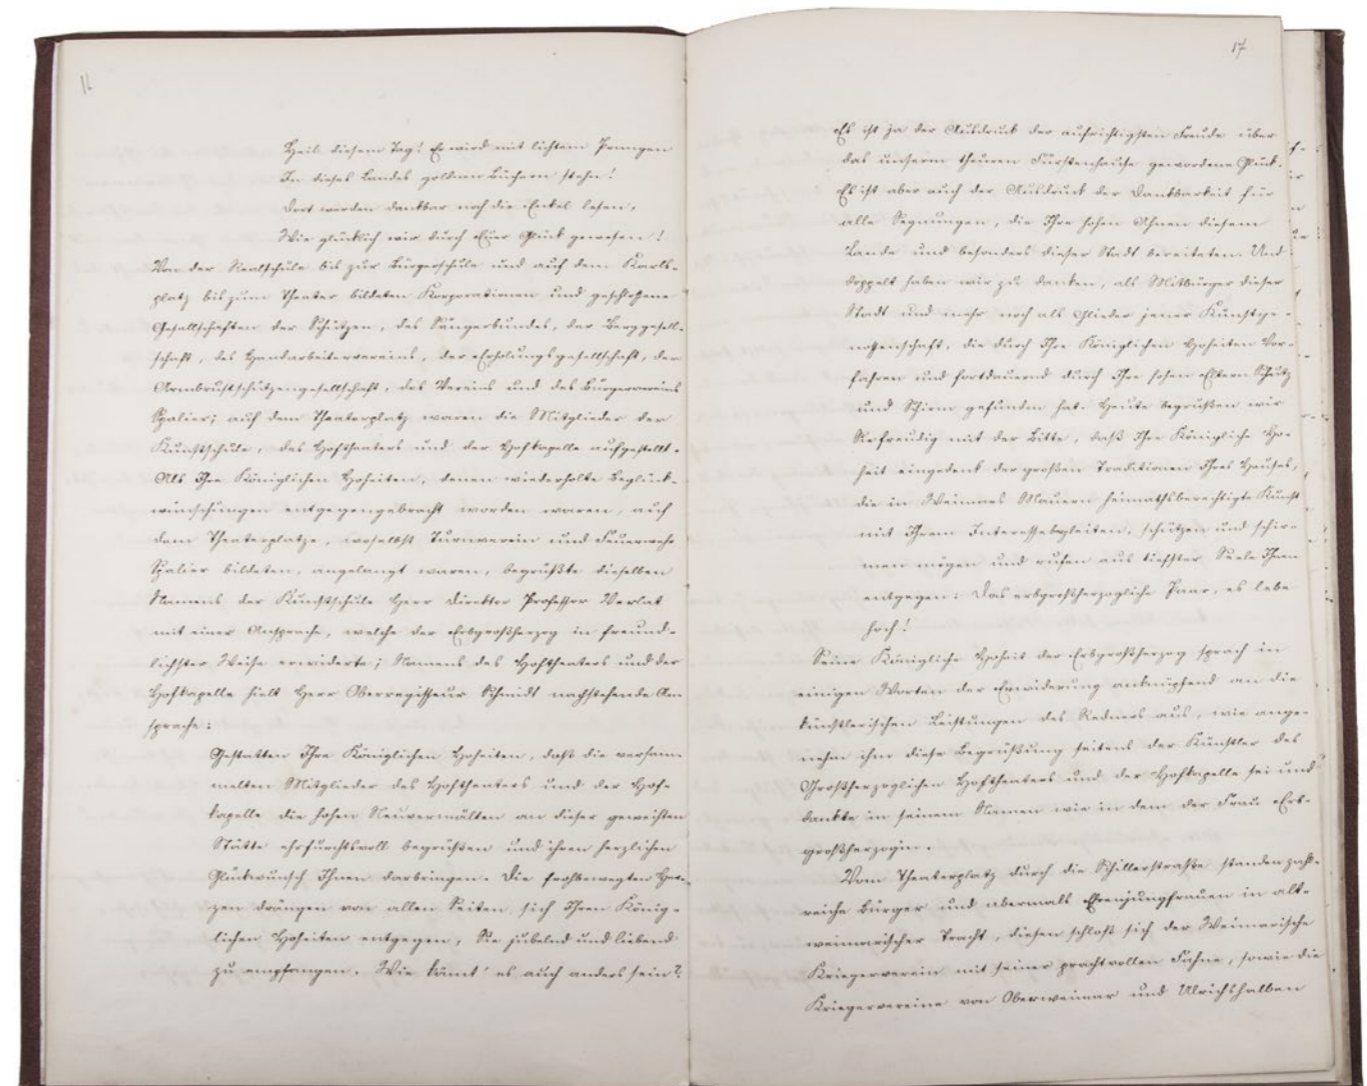 16
Heil diesem Tag! Er wird mit lichtem Prangen
In dieses Landes goldnen Büchern stehn!
Dort werden dankbar noch die Enkel lesen,
Wie glücklich wir durch Euer Glück gewesen!
Von der Realschule bis zur Bürgerschule und auf dem Karls-
platz bis zum Theater bildeten Korporationen und geschloßene
Gesellschaften der Schützen, des Sängerbundes, der Berggesell-
schaft, des Handarbeitervereins, der Erholungsgesellschaft, der
Armbrustschützengesellschaft, des Vereins und des Bürgervereins
Spalier; auf dem Theaterplatz waren die Mitglieder der
Kunstschule, des Hoftheaters und der Hofkapelle aufgestellt.
Als Ihre Königlichen Hoheiten, denen wiederholte Beglück-
wünschungen entgegengebracht worden waren, auf
dem Theaterplatze, woselbst Turnverein und Feuerwehr
Spalier bildeten, angelangt waren, begrüßte dieselben
Namens der Kunstschule Herr Direktor Professor Verlat
mit einer Ansprache, welche der Erbgroßherzog in freund-
lichster Weise erwiderte; Namens des Hoftheaters und der
Hofkapelle hielt Herr Oberregisseur Schmidt nachstehende An
sprache:
Gestatten Ihre Königlichen Hoheiten, daß die versam-
melten Mitglieder des Hoftheaters und der Hof-
kapelle die hohen Neuvermälten an dieser geweihten
Stätte ehrfurchtsvoll begrüßen und ihren herzlichen
Glückwunsch Ihnen darbringen. Die frohbewegten Her-
zen drängen von allen Seiten sich Ihren König-
lichen Hoheiten entgegen, Sie jubelnd und liebend
zu empfangen. Wie könnt' es auch anders sein?
17
Es ist ja der Ausdruck der aufrichtigsten Freude über
das unserm theuren Fürstenhause gewordene Glück.
Es ist aber auch der Ausdruck der Dankbarkeit für
alle Segnungen, die Ihre hohen Ahnen diesem
Lande und besonders dieser Stadt bereiteten. Und
doppelt haben wir zu danken, als Mitbürger dieser
Stadt und mehr noch als Glieder jener Kunstge-
nossenschaft, die durch Ihre Königlichen Hoheiten Vor-
fahren und fortdauernd durch Ihre hohen Eltern Schutz
und Schirm gefunden hat. Heute begrüßen wir
Sie freudig mit der Bitte, daß Ihre Königliche Ho-
heit eingedenk der großen Traditionen Ihres Hauses,
die in Weimars Mauern heimathsberechtigte Kunst
mit Ihrem Interesse begleiten, schützen und schir-
men mögen und rufen aus tiefster Seele Ihnen
entgegen: Das erbgroßherzogliche Paar, es lebe
hoch!
Seine Königliche Hoheit der Erbgroßherzog sprach in
einigen Worten der Erwiderung anknüpfend an die
künstlerischen Leistungen des Redners aus, wie ange-
nehm ihm diese Begrüßung seitens der Künstler des
Großherzoglichen Hoftheaters und der Hofkapelle sei und
dankte in seinem Namen wie in dem der Frau Erb-
großherzogin.
Vom Theaterplatz durch die Schillerstraße standen zahl-
reiche Bürger und abermals Ehrenjungfrauen in alt-
weimarischer Tracht, diesen schloß sich der Weimarische
Kriegerverein mit seiner prachtvollen Fahne, sowie die
Kriegervereine von Oberweimar und Ulrichshalben